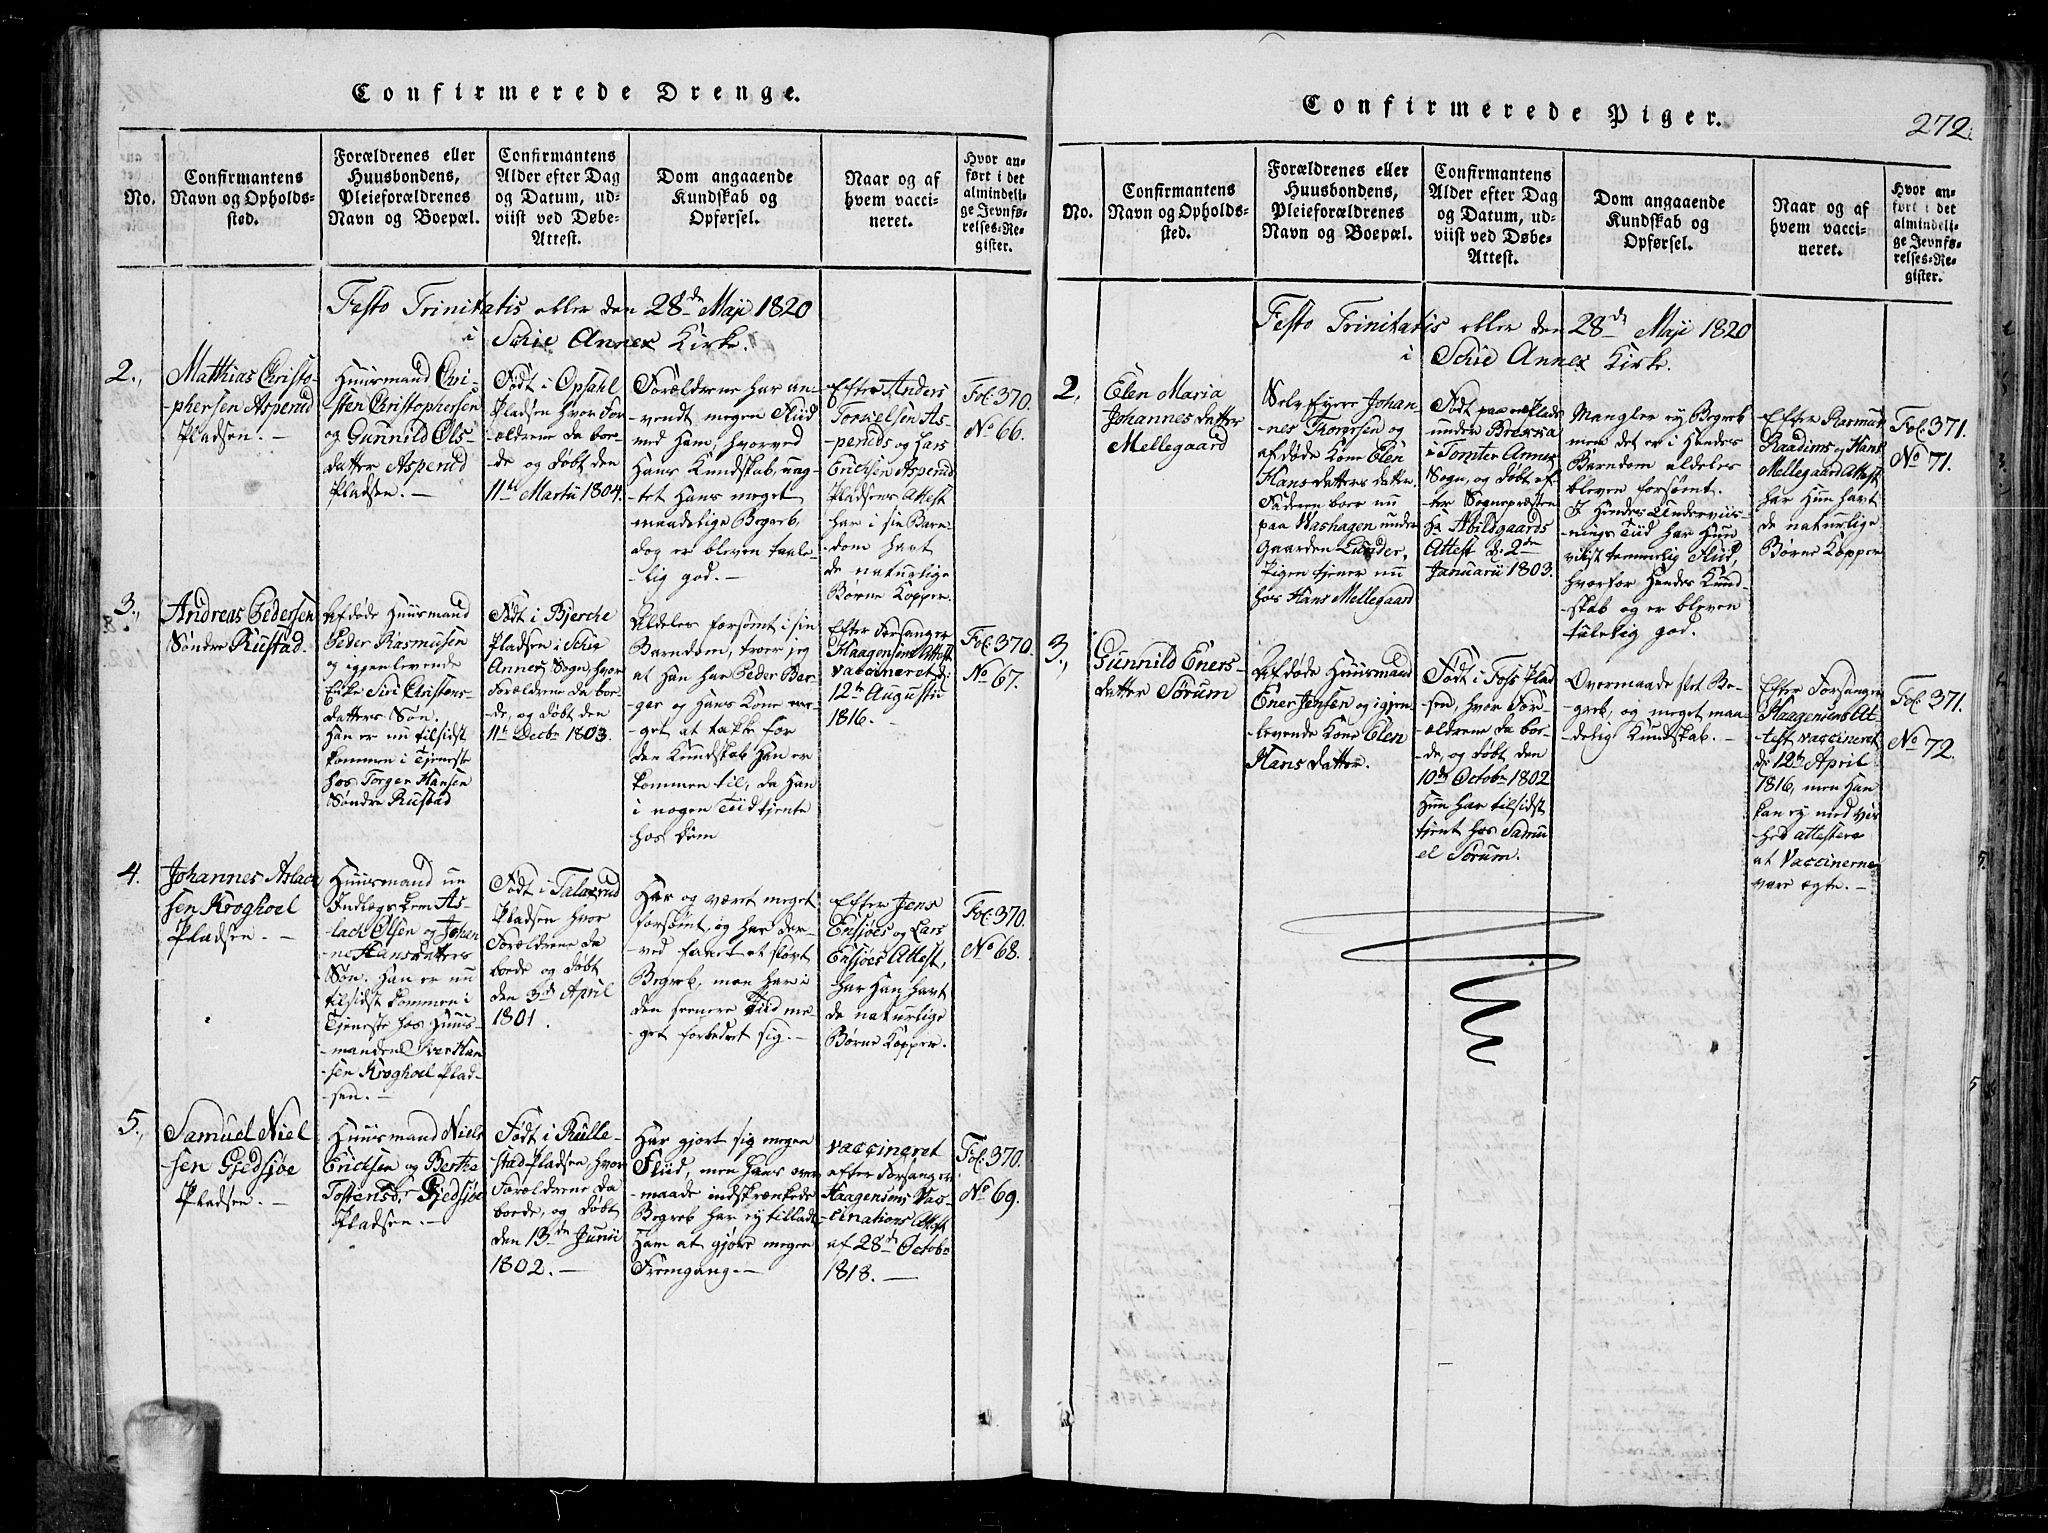 Confirmerede Drenge.
No.
Confirmantens
Navn og Opholds-
sted.
Forældrenes eller
Huusbondens,
Pleieforældrenes
Navn og Boepæl.
Confirmantens
Alder efter Dag
og Datum, ud-
viist ved Døbe-
Attest.
Dom angaaende
Kundskab og
Opførsel.
Naar og af
hvem vacci-
neret.
Hvor an-
ført i det
almindeli-
ge Jevnfø-
relses-Re-
gister.
Festo Trinitatis eller den 28de Maji 1820
i Schie Annex Kirke.
2.,
Mathias Christo-
phersen Asperud
Pladsen. -
Huusmand Chri-
sten Christophersen
og Gunnild Ols-
datter Asperud
Pladsen. -
Født i Opsahl
Pladsen hvor For-
ældrene da boe-
de og døbt den
11te Martii 1804.
Forældrene har an-
vendt megen Fliid
med ham, hvorved
hans Kundskab, uag-
tet hans meget
maadelige Begreb,
dog er bleven taale-
lig god. -
Efter Anders
As-
peruds og Lars
Erichsen Asperud
Pladsens Attest
har i sin Barn-
dom havt
de naturlige
Børne Kopper.
Fol: 370.
No 66.
3.,
Andreas Pedersen
Søndre Rustad.
Afdøde Huusmand
Peder Rasmusen
og igjenlevende
Enke Siri Christens-
datters Søn.
Han er nu tilsidst
kommen i Tjeneste
hos Torger Hansen
Søndre Rustad
Født i Bjerche
Pladsen i Schie
Annex Sogn, hvor
Forældrene da boe-
de, og døbt den
11te Decbr 1803.
Aldeles forsømt i sin
Barndom, troer jeg
at han har Peder Ber-
ger og hans Kone me-
get at takke for
den Kundskab han er
kommen til, da han
i nogen Tiid tjente
hos dem
Efter Forsanger
Haagensens Attest
vaccineret d:
12te Augustii
1816. -
Fol: 370.
No 67.
4.
Johannes Aslach-
sen Kroghoel
Pladsen. -
Huusmand
As-
lach Olsen og Johan-
ne Hansdatters
Søn. Han er nu
tilsidst kommen i
Tjeneste hos Huus-
manden Iver Han-
sen Kroghoel Plad-
sen. -
Født i Talaxrud
Pladsen hvor
Forældrene da
boede og døbt
den 3de April
1801.
Har og været meget
forsømt, og har der-
ved faaet et sløvt
Begreb, men har i
den seenere Tiid me-
get forbedret sig. -
Efter Jens
Ensjøes og Lars
Ensjøes Attest,
har han havt
de naturlige
Børne Kopper.
Fol: 370.
No 68.
5.,
Samuel Niel-
sen Gjedsjøe
Pladsen. -
Huusmand Niels
Erichsen og Berthe
Gjedsjøe
Pladsen. -
Født i Rulle-
stad Pladsen, hvor
Forældrene da
boede, og døbt
den 13de Junii
1802. -
Har gjort sig megen
Fliid, men hans over-
maade indskrænkede
Begreb har ej tilladt
ham at gjøre megen
Fremgang. -
vaccineret
efter Forsanger
Haagensens Vac-
cinations Attest
af 28de Octobr
1818. -
Fol: 370.
No 69.
Confirmerede Piger.
272.
No.
Confirmantens
Navn og Opholds-
sted.
Forældrenes eller
Huusbondens,
Pleieforældrenes
Navn og Boepæl.
Confirmantens
Alder efter Dag
og Datum, ud-
viist ved Døbe-
Attest.
Dom angaaende
Kundskab og
Opførsel.
Naar og af
hvem vacci-
neret.
Hvor an-
ført i det
almindeli-
ge Jevnfø-
relses-Re-
gister.
Festo Trinitatis eller den 28de Maji 1820
i Schie Annex Kirke.
2,
Elen Maria
Johannes datter
Mellegaard
Selv Eyere Johan-
nes Thoresen og
afdøde Kone Elen
Hansdatters datter.
Faderen boer nu
paa Washagen under
Gaarden Lunder,
Pigen tjener nu
hos Hans Mellegaard
Født paa en Plads
under Brevva
i Tomter Annex
Sogn, og døbt ef-
ter Sognepræsten
Hr Abildgaards
Attest d: 2den
Januarii 1803.
Mangler ej Begreb
men det er i hendes
Barndom aldeles
bleven forsømt.
I hendes Underviis-
nings Tiid har hun
viist temmelig Fliid,
hvorfor hendes Kund-
skab og er bleven
taalelig god.
Efter Rasmus
Raadims og Hans
Mellegaards Attest
har hun havt
de naturlige
Børne Kopper
Fol: 371.
No 71.
3.,
Gunnild Eners-
datter Sørum
Afdøde Huusmand
Ener Jensen og igjen-
levende Kone Elen
Hans datter.
Født i Foss Plad-
sen, hvor For-
ældrene da boe-
de, og døbt den
10de Octobr 1802
Hun har tilsidst
tjent hos Samu-
el Sørum.
Overmaade slet Be-
greb, og meget maa-
delig Kundskab. -
Efter Forsanger
Haagensens At-
test vaccineret
d: 12te April
1816, men han
kan ej med Vis-
hed attestere
at Vaccinerne
vare ægte. -
Fol: 371.
No 72.